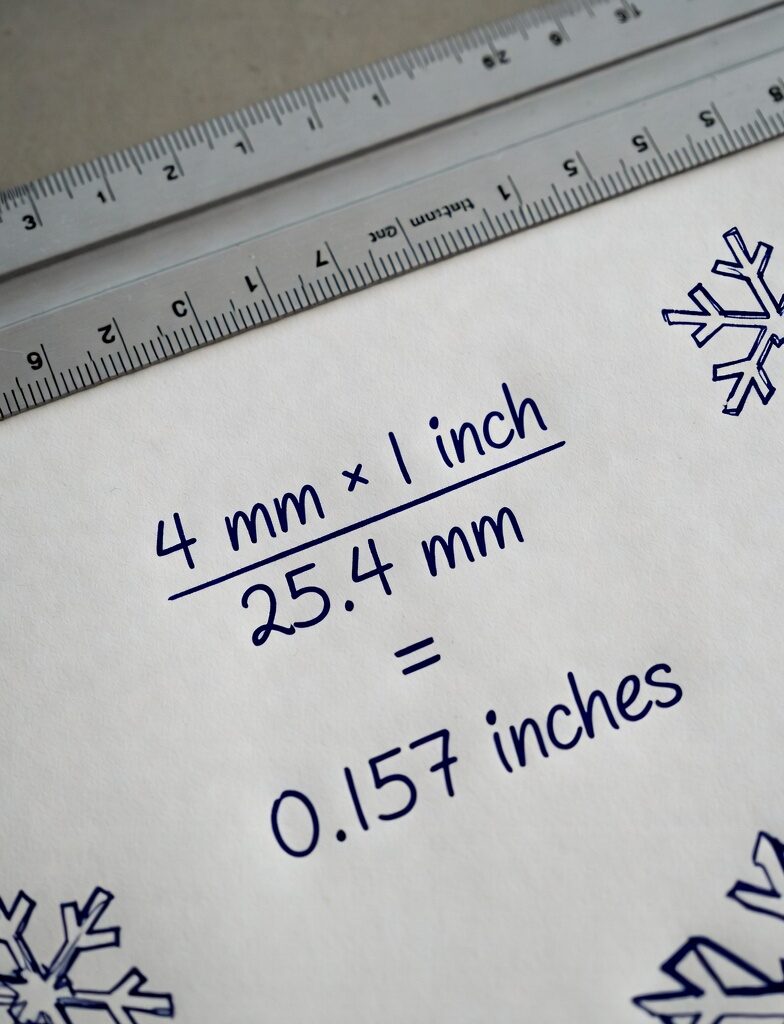 4 mm × 1 inch
25.4 mm
=
0.157 inches